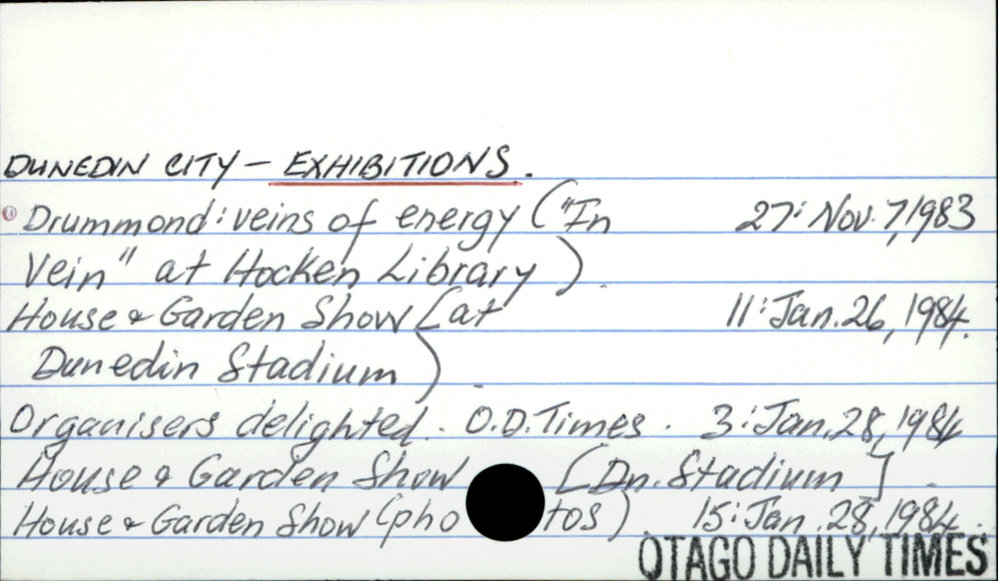 DUNEDIN CITY - EXHIBITIONS.
Drummond: veins of energy ("In 27: Nov. 7, 1983
Vein" at Hocken Library).
House & Garden Show (at 11: Jan. 26, 1984.
Dunedin Stadium).
Organisers delighted. O.D.Times. 3: Jan. 28, 1984
House & Garden Show [Dn. Stadium].
House & Garden Show (photos) 15: Jan. 28, 1984.
OTAGO DAILY TIMES